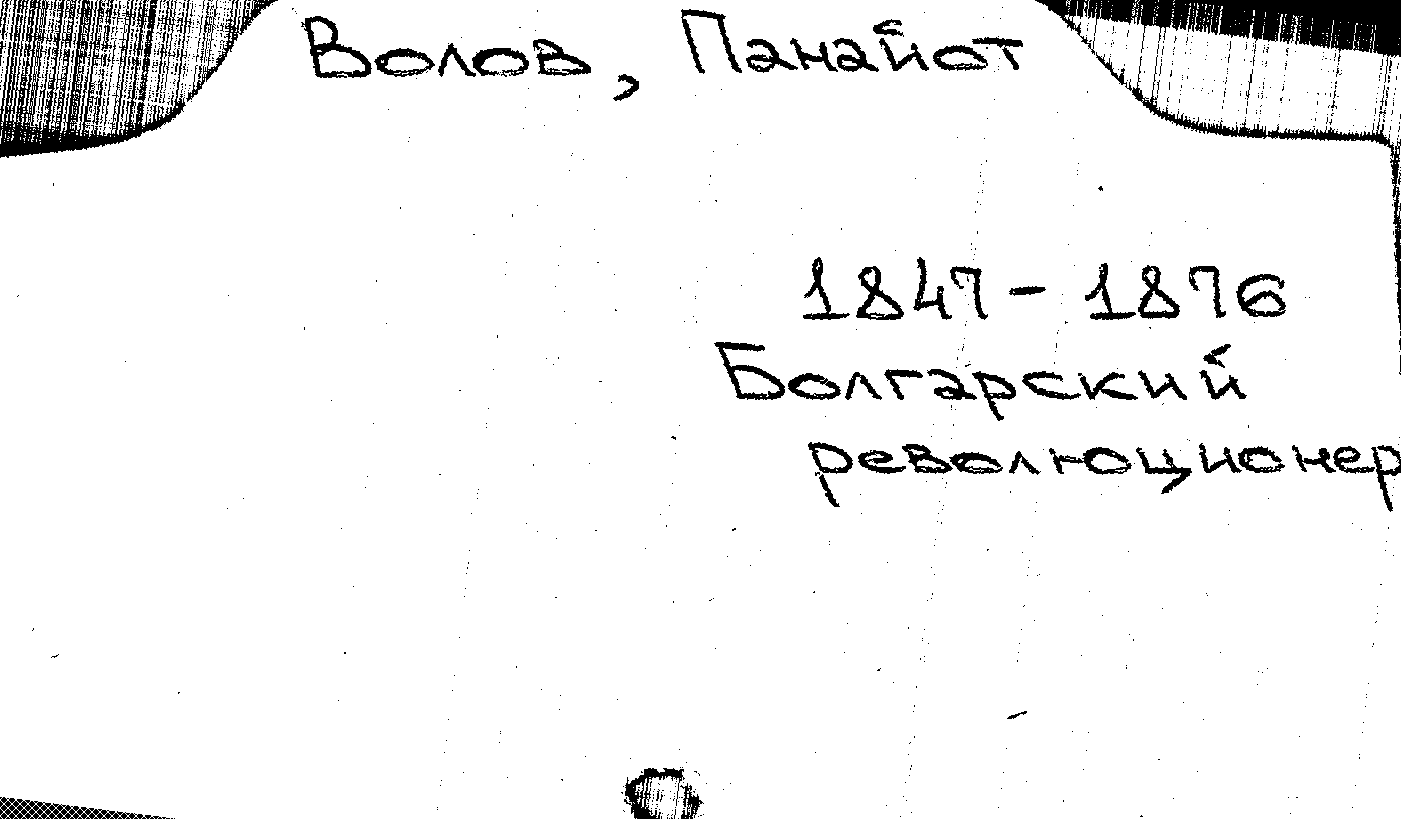 Волов, Панайот
1847 - 1876
Болгарский
революционер